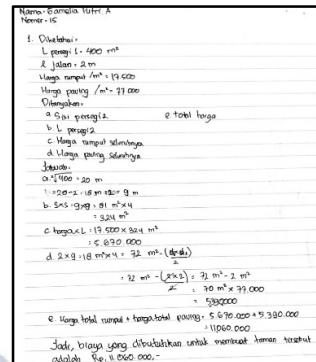 Nama = Gamelia Putri. A
Nomer = 15
1. Diketahui =
L persegi 1 = 400 m²
l jalan = 2 m
Harga rumput /m² = 17.500
Harga paving /m² = 77.000
Ditanyakan =
a. Sisi persegi 2 e total harga
b. L persegi 2
c. Harga rumput seluruhnya
d. Harga paving seluruhnya
Jawab =
a. √400 = 20 m
= 20 - 2 = 18 m ÷ 2 = 9 m
b. s×s = 9×9 = 81 m² × 4
= 324 m²
c harga × L = 17.500 × 324 m²
= 5.670.000
d. 2 × 9 = 18 m² × 4 = 72 m² - ( )
2
= 72 m² - (2×2) = 72 m² - 2 m²
2 = 70 m² × 77.000
= 5390000
e Harga total rumput + harga total paving = 5.670.000 + 5.390.000
= 11060.000
Jadi, biaya yang dibutuhkan untuk membuat taman tersebut
adalah Rp. 11.060.000,-